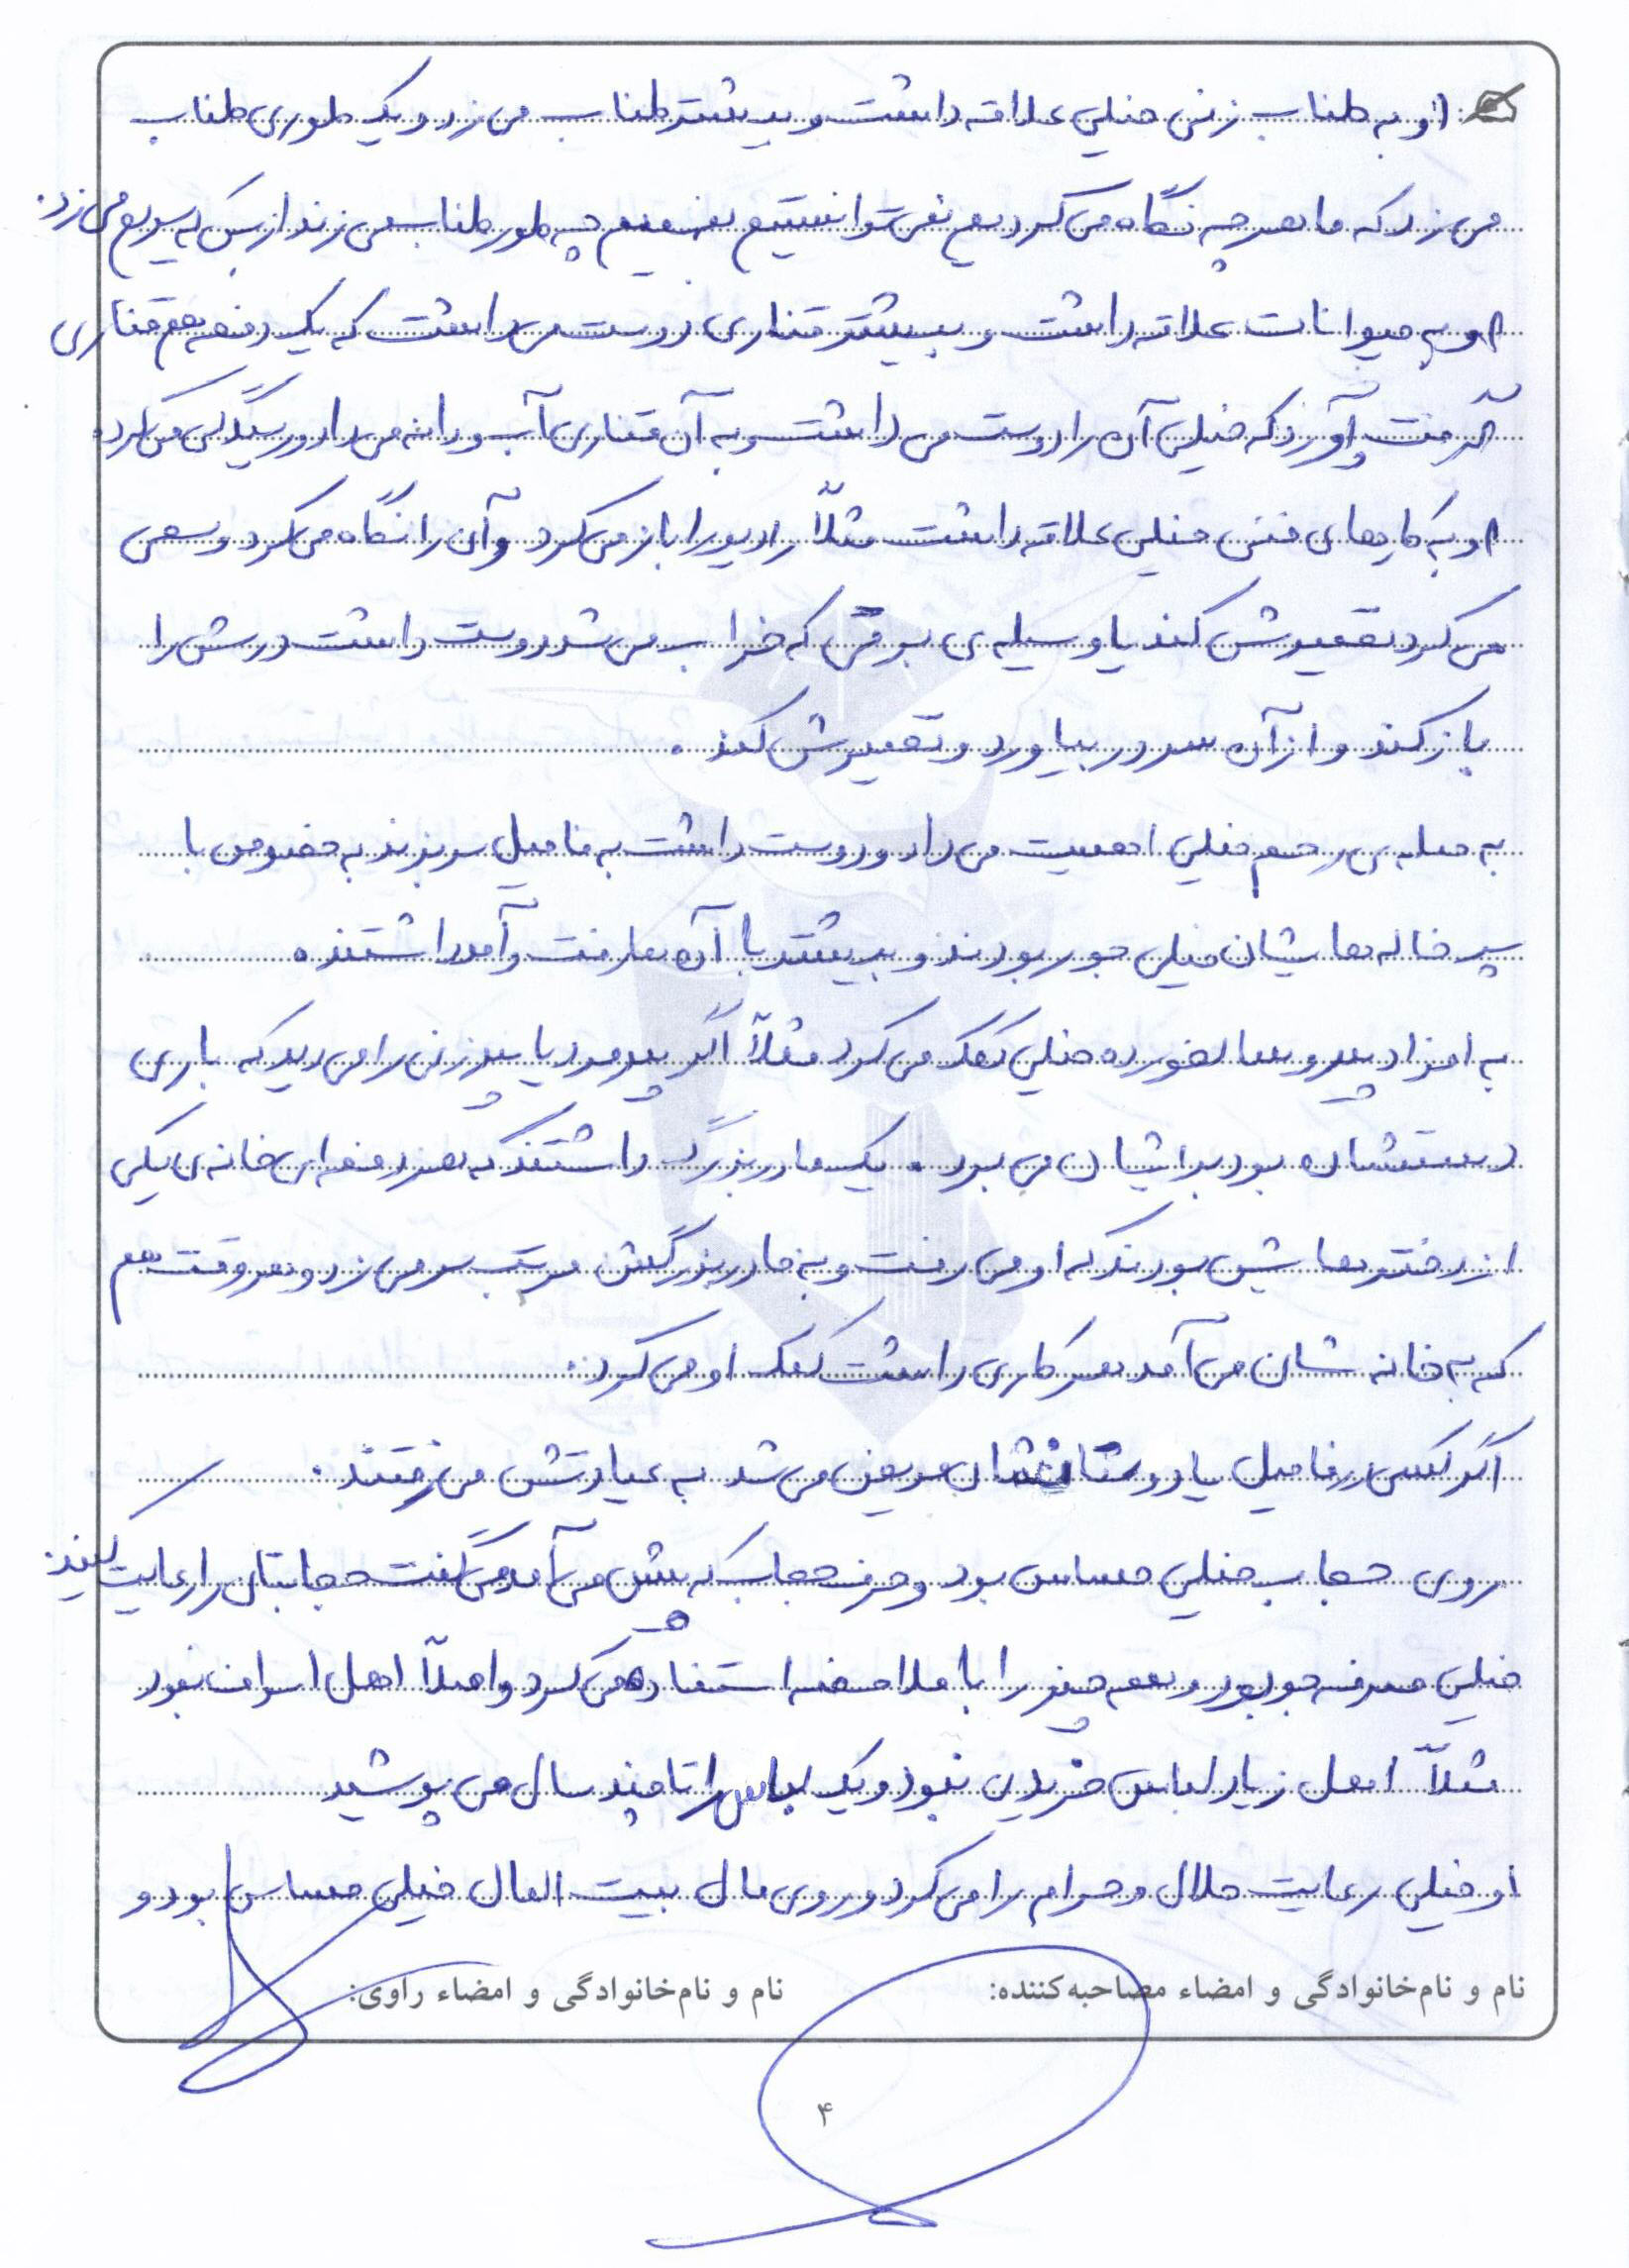 او به طناب زنی خیلی علاقه داشت و بیشتر طناب می زد و یک طوری طناب
می زد که ما هر چه نگاه می کردیم نمی توانستیم بفهمیم چه طور طناب می زند از بس که سریع می زد.
او به حیوانات علاقه داشت و بیشتر قناری دوست می داشت که یک دفعه هم قناری
گرفت آورد که خیلی آن را دوست می داشت و به آن قناری آب و دانه می داد و رسیدگی می کرد.
او به کارهای فنی خیلی علاقه داشت مثلاً رادیو را باز می کرد و آن را نگاه می کرد و سعی
می کرد تعمیرش کند یا وسیله ی برقی که خراب می شد دوست داشت درش را
باز کند و از آن سر در بیاورد و تعمیرش کند .
به صله ی رحم خیلی اهمیت می داد و دوست داشت به فامیل سر بزند به خصوص با
پسر خاله هایشان خیلی جور بودند و بیشتر با آن ها رفت و آمد داشتند .
به افراد پیر و سالخورده خیلی کمک می کرد مثلاً اگر پیر مرد یا پیر زنی را می دید که باری
دستشان بود برایشان می برد . یک مادر بزرگ داشتند که هر دفعه ای خانه ی یکی
از دخترهایش بودند که او می رفت و به مادر بزرگش مرتب سر می زد و هر وقت هم
که به خانه شان می آمد هر کاری داشت کمک او می کرد .
اگر کسی در فامیل یا دوستانشان مریض می شد به عیادتش می رفتند .
روی حجاب خیلی حساس بود و حرف حجاب که پیش می آمد می گفت حجابتان را رعایت کنید.
خیلی صرفه جو بود و همه چیز را با ملاحظه استفاده می کرد و اصلاً اهل اسراف نبود
مثلاً اهل زیاد لباس خریدن نبود و یک لباس را تا چند سال می پوشید
او خیلی رعایت حلال و حرام را می کرد و روی مال بیت المال خیلی حساس بود و
نام و نام‌خانوادگی و امضاء مصاحبه‌کننده: نام و نام‌خانوادگی و امضاء راوی:
۴